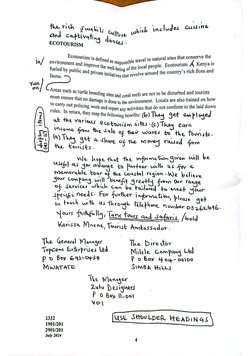 the rich Swahili culture which includes cuisine
and captivating dances.
ECOTOURISM
Ecotourism is defined as responsible travel to natural sites that conserve the
environment and improve the well-being of the local people. Ecotourism in Kenya is
fueled by public and private initiatives that revolve around the country's rich flora and
fauna.
Areas such as turtle breeding sites and coral reefs are not to be disturbed and tourists
must ensure that no damage is done to the environment. Locals are also trained on how
to carry out policing work and report any activities that do not conform to the laid down
rules. In return, they reap the following benefits: (b) They get employed
at the various ecotourism sites. (c) They earn
income from the sale of their wares to the tourists.
(a) They get a share of the money raised from
the tourists.
We hope that the information given will be
useful as you arrange to partner with us for a
memorable tour of the coastal region. We believe
your company will benefit greatly from our range
of services which can be tailored to meet your
specific needs. For further information, please get
in touch with us through telephone number
Yours faithfully, Tana tours and safaris /bold
Karissa Mneno, Tourist Ambassador.
The General Manager The Director
Topcom Enterprises Ltd Milele Company Ltd
P O Box P O Box
MWATATE SIMBA HILLS
The Manager
Zulu Designers
P O Box
VOI
USE SHOULDER HEADINGS
2332
2901/201
2901/201
July 2024
4